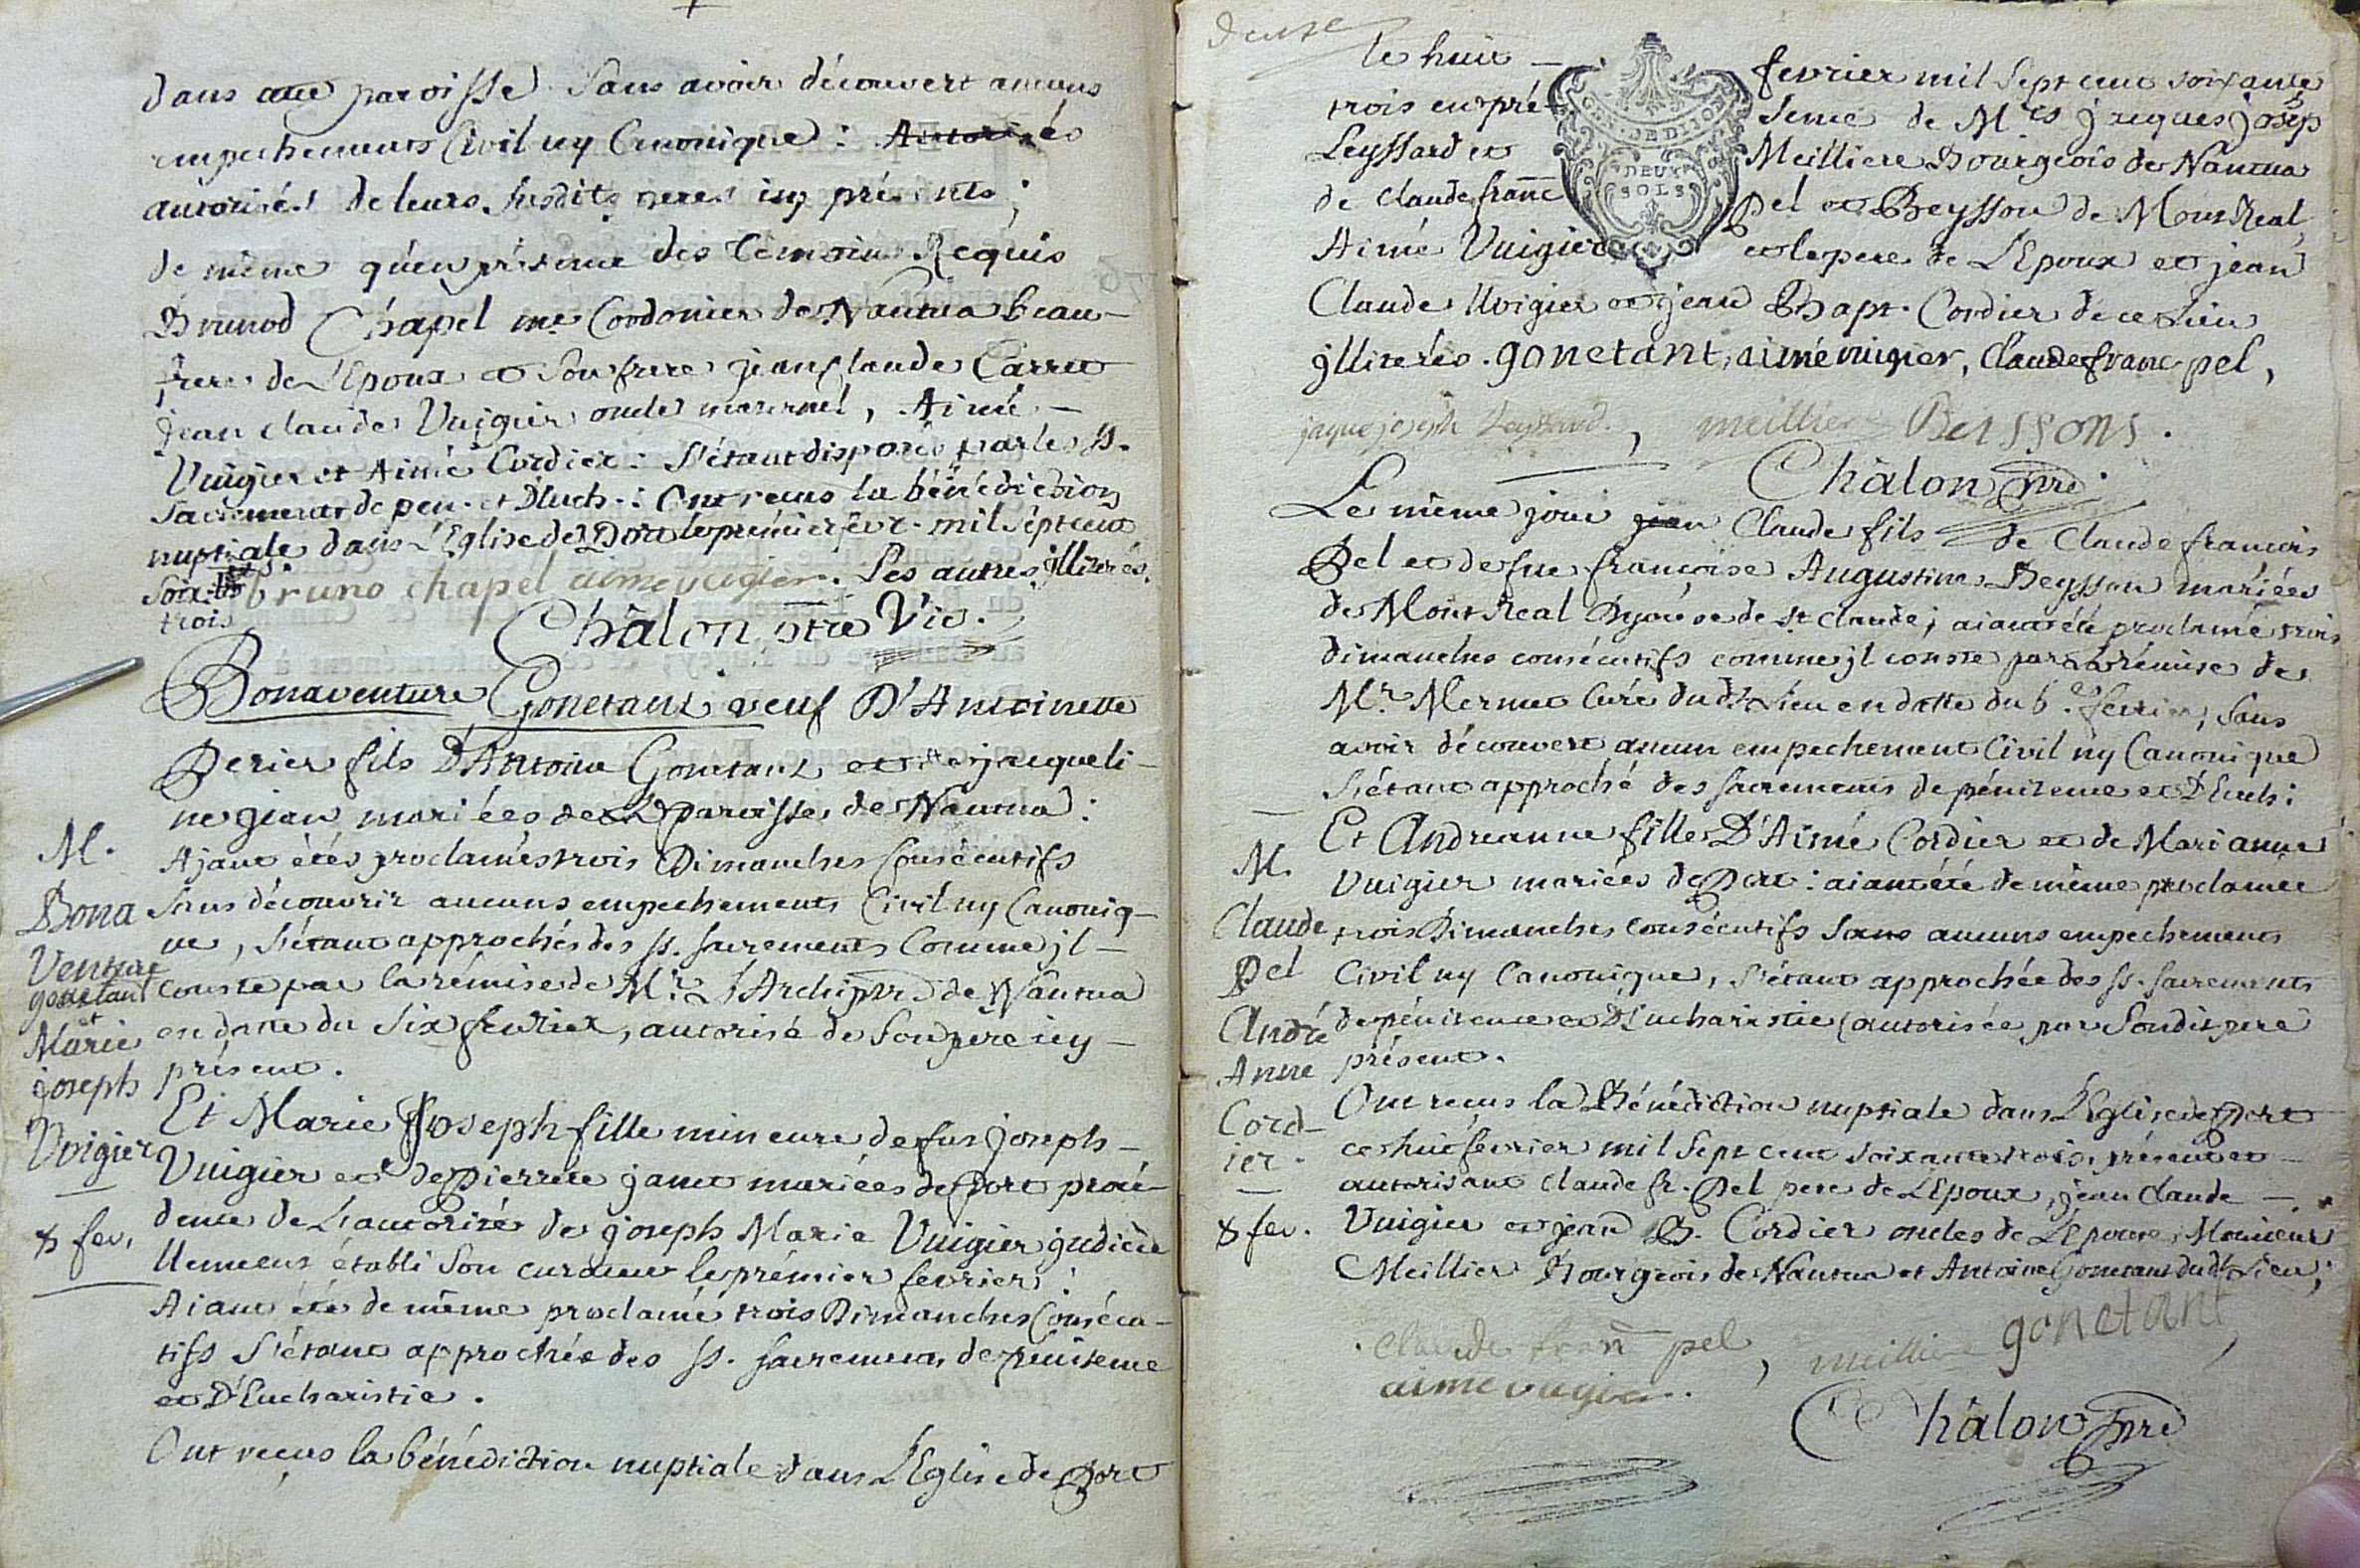 dans cette paroisse sans avoir découvert aucuns
empechements Civil ny Canonique : Autorisés
autorisés de leurs susdits peres icy présents ;
de même qu'en présence des Temoins Requis
Brunod Chapel me Cordonier de Nantua beau-
frere de l'Epoux et son frere jean Claude Carret
jean claude Vuigier oncle maternel, Aimé -
Vuigier et Aimé Cordier : s'étant disposés par les SS.
Sacrements de pen. et D'Euch. : Ont reçus la bénédiction
nuptiale dans l'Eglise de Port le prémier fevr. mil sept cent
soix.te bruno chapel aime vugier. Les autres illiterés.
trois
Châlon ptre Vic.
Bonaventure Gonetant veuf D'Antoinette
Perier fils D'Antoine Gonetant et de jacqueli-
ne gian mariées de paroisse de Nantua :
Ajant étés proclamés trois Dimanches Consécutifs
sans découvrir aucuns empechements Civil ny Canoniq-
ue, s'étant approchés des SS. Sacrements Comme jl -
conste par la rémise de Mr. L'Archiptre de Nantua
en datte du six fevrier, autorisé de son pere icy -
présent.
M.
Bona
Venture
gonetant
et
Marie
joseph
Vuigier
8 fev.
Et Marie Joseph fille mineure de fus joseph -
Vuigier et de Pierrete janet mariées de Port procé-
dente de L'autorité de joseph Marie Vuigier judiciè
llement établi son curateur le prémier fevrier :
Aiant été de même proclamé trois Dimanches Conséca-
tifs s'étant approchée des SS. Sacrements de pénitence
et D'Eucharistie.
Ont reçus la bénédiction nuptiale dans L'Eglise de Port
le huit - fevrier mil sept cent soixante
trois en pré- sence de M.rs jacques josep
Leyssard et Meilliere Bourgeois de Nantua
de claude franc Pel et Beysson de Mont Real,
Aimé Vuigier et le pere de L'Epoux et jean
GEN. DE DIJON
DEUX
SOLS
Claude Vuigier et jean Bapt. Cordier de ce Lieu
jlliterés. gonetant, aimé vugier, Claude franc pel,
jaque joseph Leyssard, meilliere Beissons.
Châlon ptre
Le même jour jean Claude fils de Claude francois
Pel et de fue françoise Augustine Beysson mariées
de Mont Real Dyocèse de St Claude ; aiant été proclamé trois
dimanches consécutifs comme jl conste par la rémise de
Mr. Mermet Curé dudt Lieu en datte du 6.e fevrier, sans
avoir découvert aucun empechement Civil ny Canonique
s'étant approché des sacrements de pénitence et D'Euch :
M.
Claude
Pel
André
Anne
Cord-
ier.
8 fev.
Et Andreanne fille D'Aimé Cordier et de Marianne
Vuigier mariées de Port : aiant été de même proclamée
trois Dimanches consécutifs sans aucuns empechements
Civil ny Canonique, s'étant approchée des SS. Sacrements
de pénitence et D'Eucharistie (autorisée par sondit pere
présent.
Ont reçus la Bénédiction nuptiale dans L'Eglise de Port
ce huit fevrier mil sept cent soixante trois, présent et -
autorisant Claude fr. Pel pere de L'Epoux, jean Claude -
Vuigier et jean B. Cordier oncles de L'Epouse, Monsieur
Meillier Bourgeois de Nantua et Antoine Gonetant dudt Lieu ;
Claude franc pel, meilliere gonetant
aime vugier.
Châlon ptre